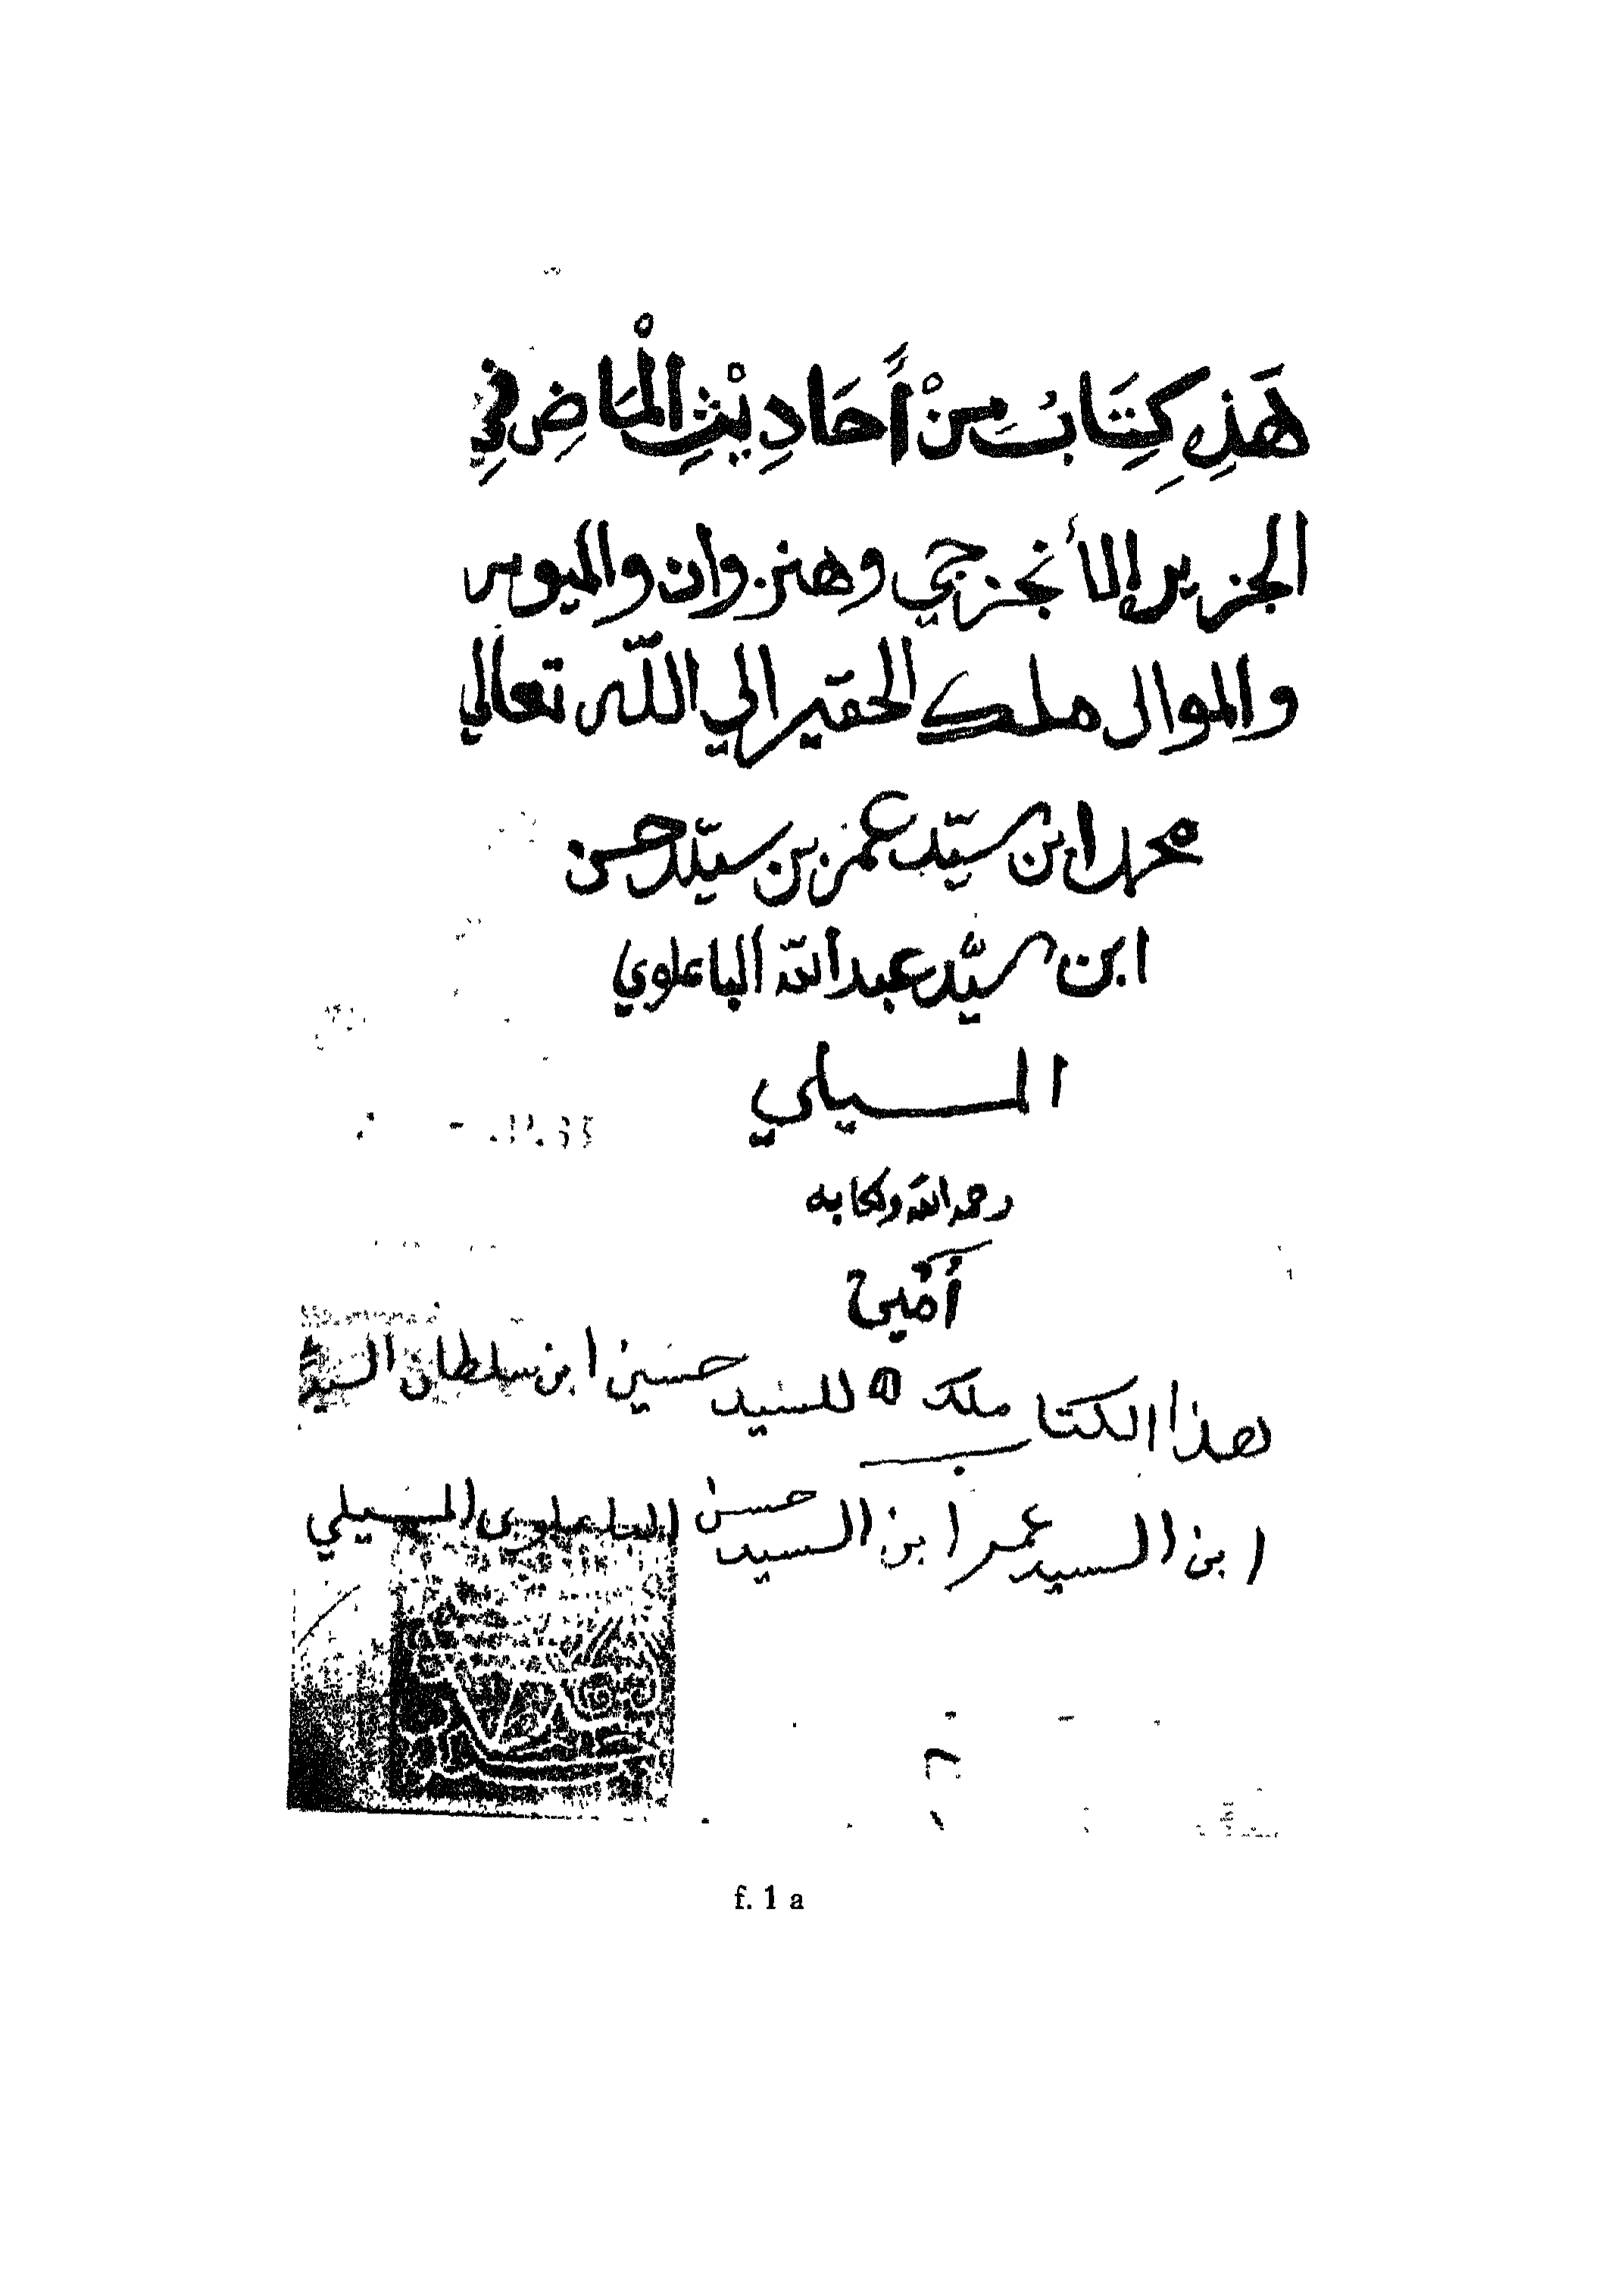 هَذِ كِتَابُ مِنْ أَحَادِيْثِ الْمَاضِ فِي
الجزير إلا أنجزجي وهنزوان والميوس
والموالى ملك الحقير الي اللّه تعالي
محمد ابن سيّد عمر بن سيّد حسن
ابن سيّد عبد الله الباعلوي
المسيلي
رحمه الله وكابه
أمين
هذا الكتاب ملك للسيد حسين ابن سلطان السيد
ابن السيد عمر ابن السيد حسن الباعلوي المسيلي
f. 1 a